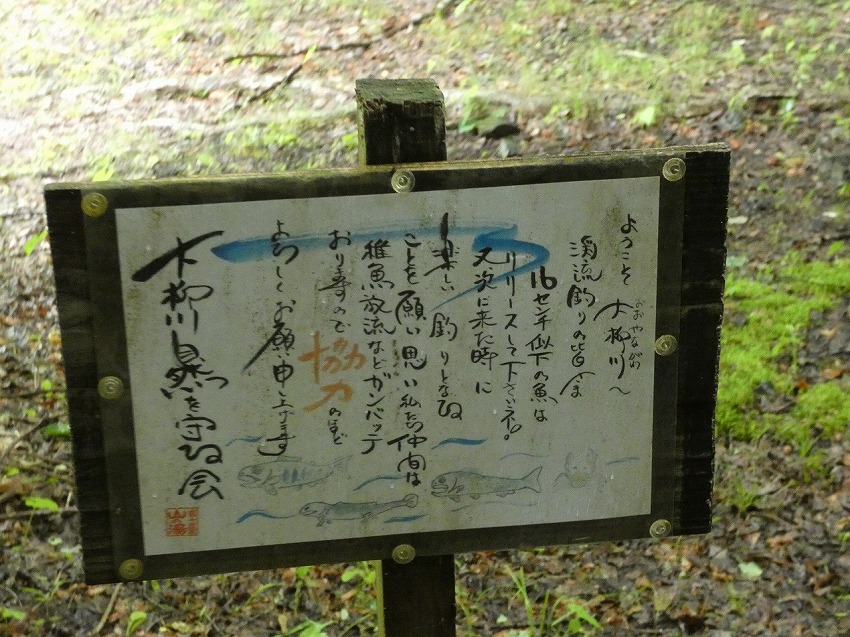 ようこそ 大柳川へ
おおやながわ
渓流釣りの皆さま
16センチ似下の魚は
リリースして下さいネ。
又次に来た時に
楽しい釣りとなる
ことを願い思い私たち仲間は
稚魚放流などガンバッテ
おりますので 協力のほど
よろしくお願い申し上げます
大柳川自然を守る会